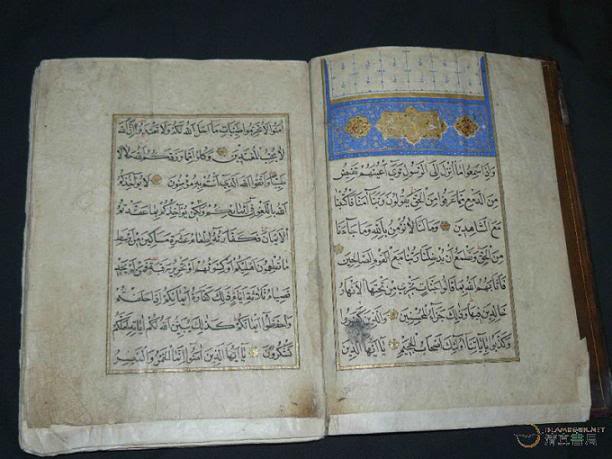 وَإِذَا سَمِعُوا مَا أُنْزِلَ إِلَى الرَّسُولِ تَرَى أَعْيُنَهُمْ تَفِيضُ
مِنَ الدَّمْعِ مِمَّا عَرَفُوا مِنَ الْحَقِّ يَقُولُونَ رَبَّنَا آمَنَّا فَاكْتُبْنَا
مَعَ الشَّاهِدِينَ وَمَا لَنَا لَا نُؤْمِنُ بِاللَّهِ وَمَا جَاءَنَا
مِنَ الْحَقِّ وَنَطْمَعُ أَنْ يُدْخِلَنَا رَبُّنَا مَعَ الْقَوْمِ الصَّالِحِينَ
فَأَثَابَهُمُ اللَّهُ بِمَا قَالُوا جَنَّاتٍ تَجْرِي مِنْ تَحْتِهَا الْأَنْهَارُ
خَالِدِينَ فِيهَا وَذَلِكَ جَزَاءُ الْمُحْسِنِينَ وَالَّذِينَ كَفَرُوا
وَكَذَّبُوا بِآيَاتِنَا أُولَئِكَ أَصْحَابُ الْجَحِيمِ يَا أَيُّهَا الَّذِينَ
آمَنُوا لَا تُحَرِّمُوا طَيِّبَاتِ مَا أَحَلَّ اللَّهُ لَكُمْ وَلَا تَعْتَدُوا إِنَّ اللَّهَ
لَا يُحِبُّ الْمُعْتَدِينَ وَكُلُوا مِمَّا رَزَقَكُمُ اللَّهُ حَلَالًا
طَيِّبًا وَاتَّقُوا اللَّهَ الَّذِي أَنْتُمْ بِهِ مُؤْمِنُونَ لَا يُؤَاخِذُكُمُ
اللَّهُ بِاللَّغْوِ فِي أَيْمَانِكُمْ وَلَكِنْ يُؤَاخِذُكُمْ بِمَا عَقَّدْتُمُ
الْأَيْمَانَ فَكَفَّارَتُهُ إِطْعَامُ عَشَرَةِ مَسَاكِينَ مِنْ أَوْسَطِ
مَا تُطْعِمُونَ أَهْلِيكُمْ أَوْ كِسْوَتُهُمْ أَوْ تَحْرِيرُ رَقَبَةٍ فَمَنْ لَمْ يَجِدْ
فَصِيَامُ ثَلَاثَةِ أَيَّامٍ ذَلِكَ كَفَّارَةُ أَيْمَانِكُمْ إِذَا حَلَفْتُمْ
وَاحْفَظُوا أَيْمَانَكُمْ كَذَلِكَ يُبَيِّنُ اللَّهُ لَكُمْ آيَاتِهِ لَعَلَّكُمْ
تَشْكُرُونَ يَا أَيُّهَا الَّذِينَ آمَنُوا إِنَّمَا الْخَمْرُ وَالْمَيْسِرُ
ISLAMBOOK.NET
清真書局